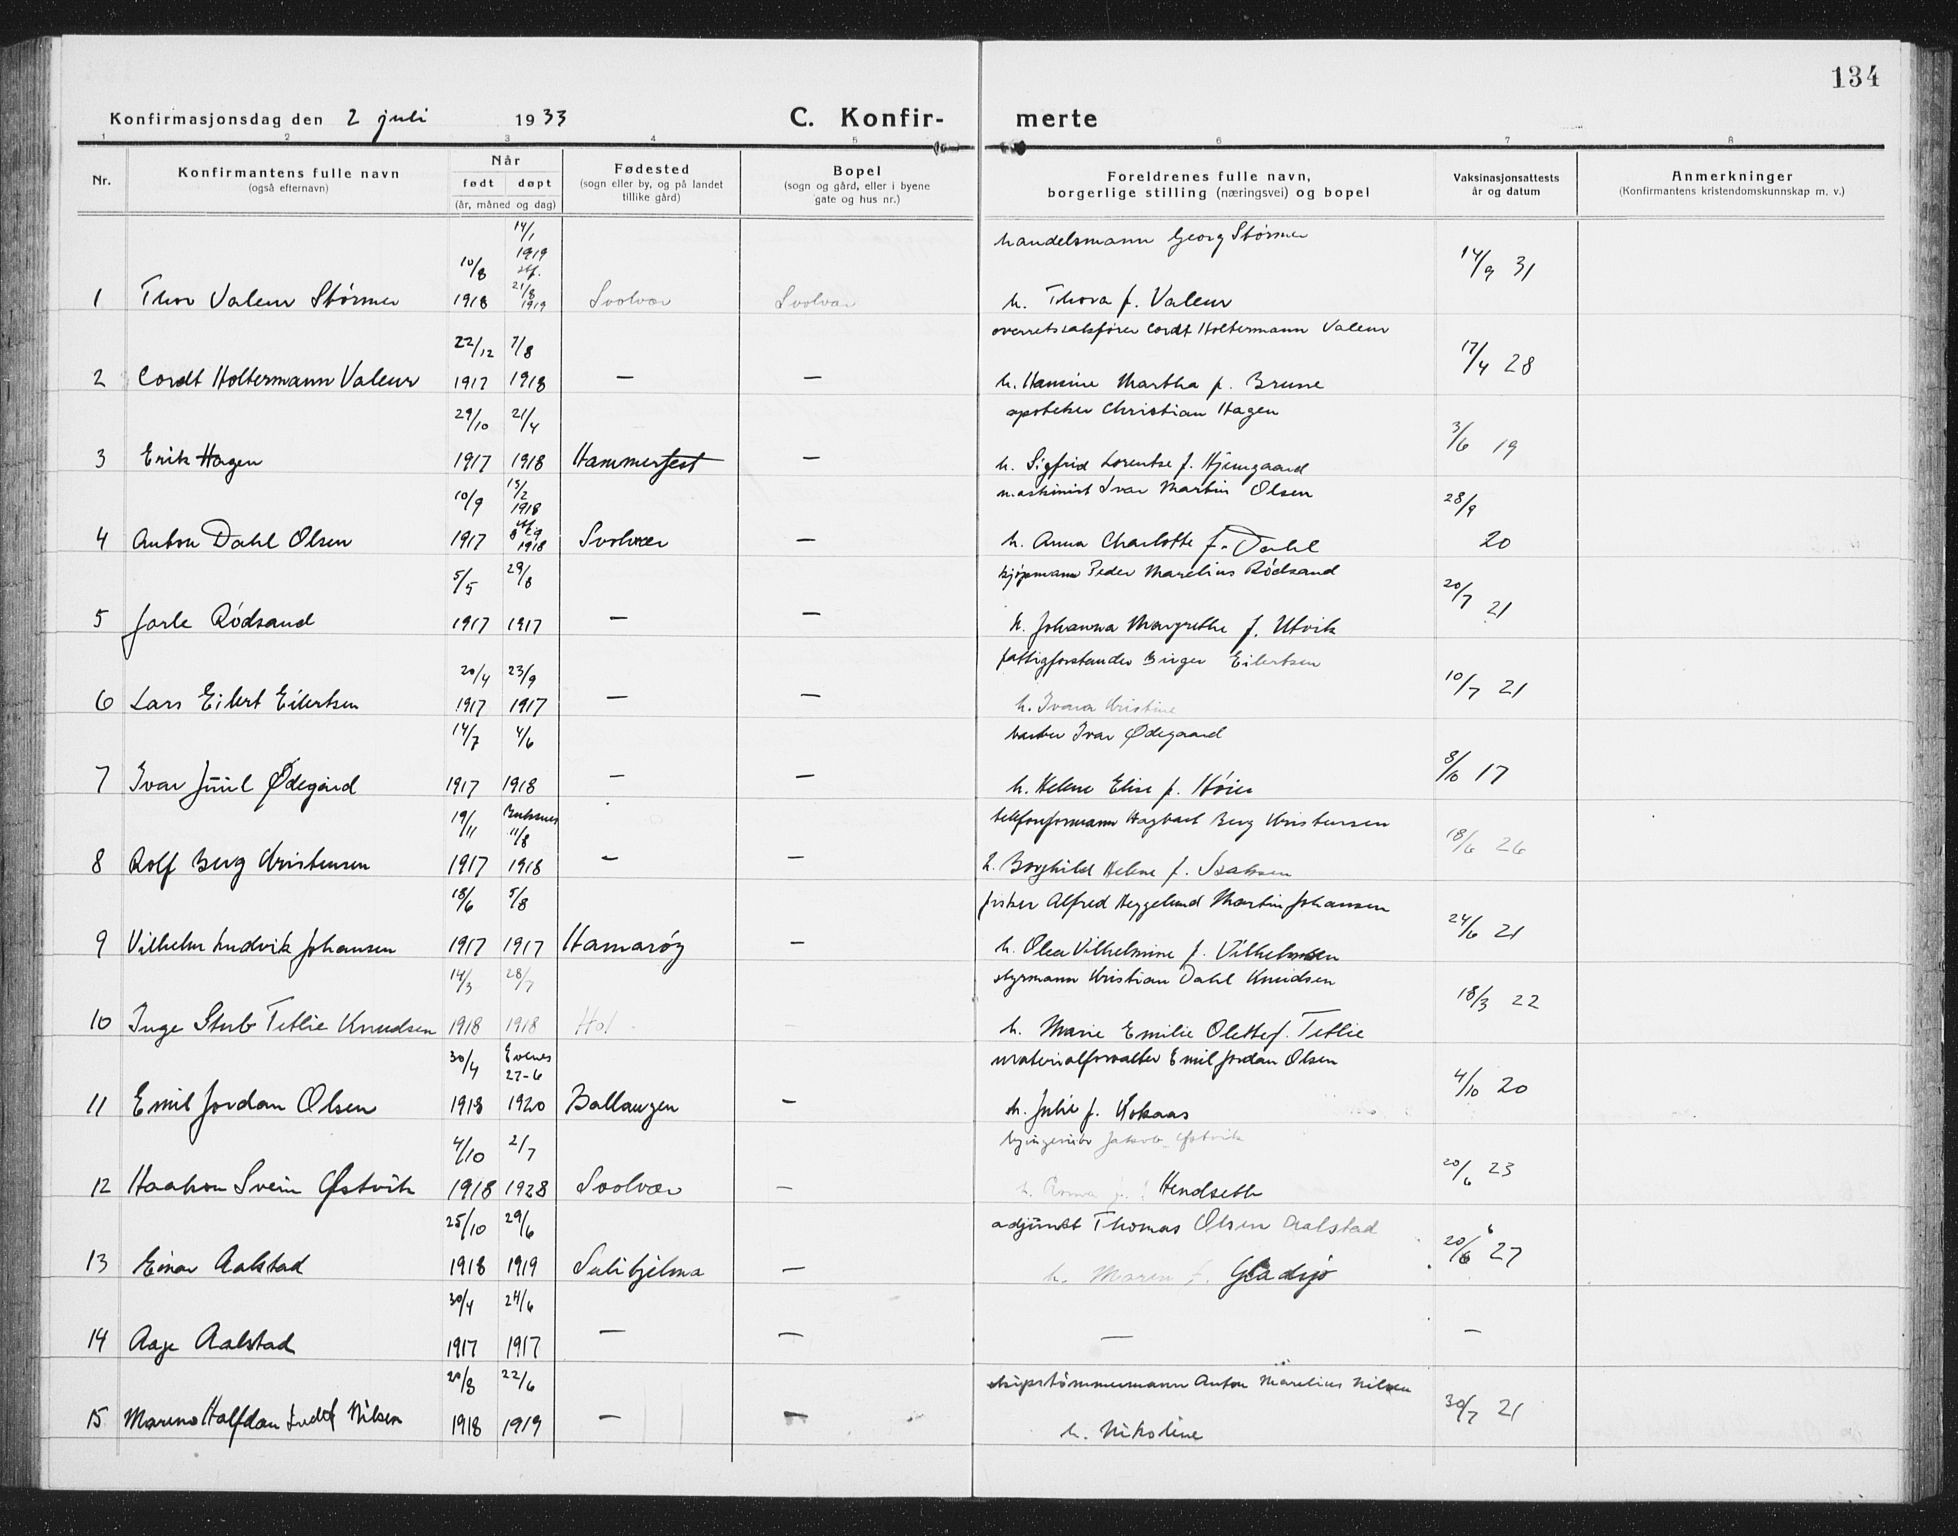 134
Konfirmasjonsdag den 2 juli 1933 C. Konfir- merte
1 2 3 4 5 6 7 8
Nr. Konfirmantens fulle navn (også efternavn) Når født døpt (år, måned og dag) Fødested (sogn eller by, og på landet tillike gård) Bopel (sogn og gård, eller i byene gate og hus nr.) Foreldrenes fulle navn, borgerlige stilling (næringsvei) og bopel Vaksinasjonsattests år og datum Anmerkninger (Konfirmantens kristendomskunnskap m. v.)
10/8 14/1 1919 stf. 21/8 1919 handelsmann Georg Størmer 14/9 31
1 Thor Valeur Størmer 1918 Svolvær Svolvær h. Thora f. Valeur
22/12 7/8 overretssakfører Cordt Holtermann Valeur 17/4 28
2 Cordt Holtermann Valeur 1917 1918 — — h. Hansine Martha f. Brune
29/10 21/4 apoteker Christian Hagen 3/6 19
3 Erik Hagen 1917 1918 Hammerfest — h. Sigfrid Lorentse f. Hjemgaard
10/9 15/2 1918 maskinist Ivar Martin Olsen 28/9
4 Anton Dahl Olsen 1917 stf. 8/9 1918 Svolvær — h. Anna Charlotte f. Dahl 20
5/5 29/8 kjøpmann Peder Marelius Rødsand 20/7 21
5 Jarle Rødsand 1917 1917 — — h. Johanna Margrethe f. Utvik
20/4 23/9 fattigforstander Birger Eilertsen 10/7 21
6 Lars Eilert Eilertsen 1917 1917 — — h. Ivara Kristine
14/7 4/6 barber Ivar Ødegaard 8/10 17
7 Ivar Juul Ødegård 1917 1918 — — h. Helene Elise f. Høier
19/11 Buksnes 11/8 telefonformann Hagbart Berg Kristensen 18/6 26
8 Rolf Berg Kristensen 1917 1918 — — h. Borghild Helene f. Isaksen
18/6 5/8 fisker Alfred Heggelund Martin Johansen 24/6 21
9 Vilhelm Ludvik Johansen 1917 1917 Hamarøy — h. Olea Vilhelmine f. Vilhelmsen
14/3 28/7 styrmann Kristian Dahl Knudsen 18/3 22
10 Inge Stub Tetlie Knudsen 1918 1918 Hol — h. Marie Emilie Olette f. Tetlie
30/4 Evenes 27-6 materialforvalter Emil Jordan Olsen 4/10 20
11 Emil Jordan Olsen 1918 1920 Ballangen — h. Julie f. Kokaas
4/10 2/7 byingeniør Jakob Østvik 20/6 23
12 Haakon Svein Østvik 1918 1928 Svolvær — h. f. Hendseth
25/10 29/6 adjunkt Thomas Olsen Aalstad 20/6 27
13 Einar Aalstad 1918 1919 Sulitjelma — h. Maren f. Gladsjø
30/4 24/6
14 Aage Aalstad 1917 1917 — — — —
20/8 22/6 skipstømmermann Anton Marelius Nilsen 30/7 21
15 Mareno Halfdan Nilsen 1918 1919 — — h. Nikoline